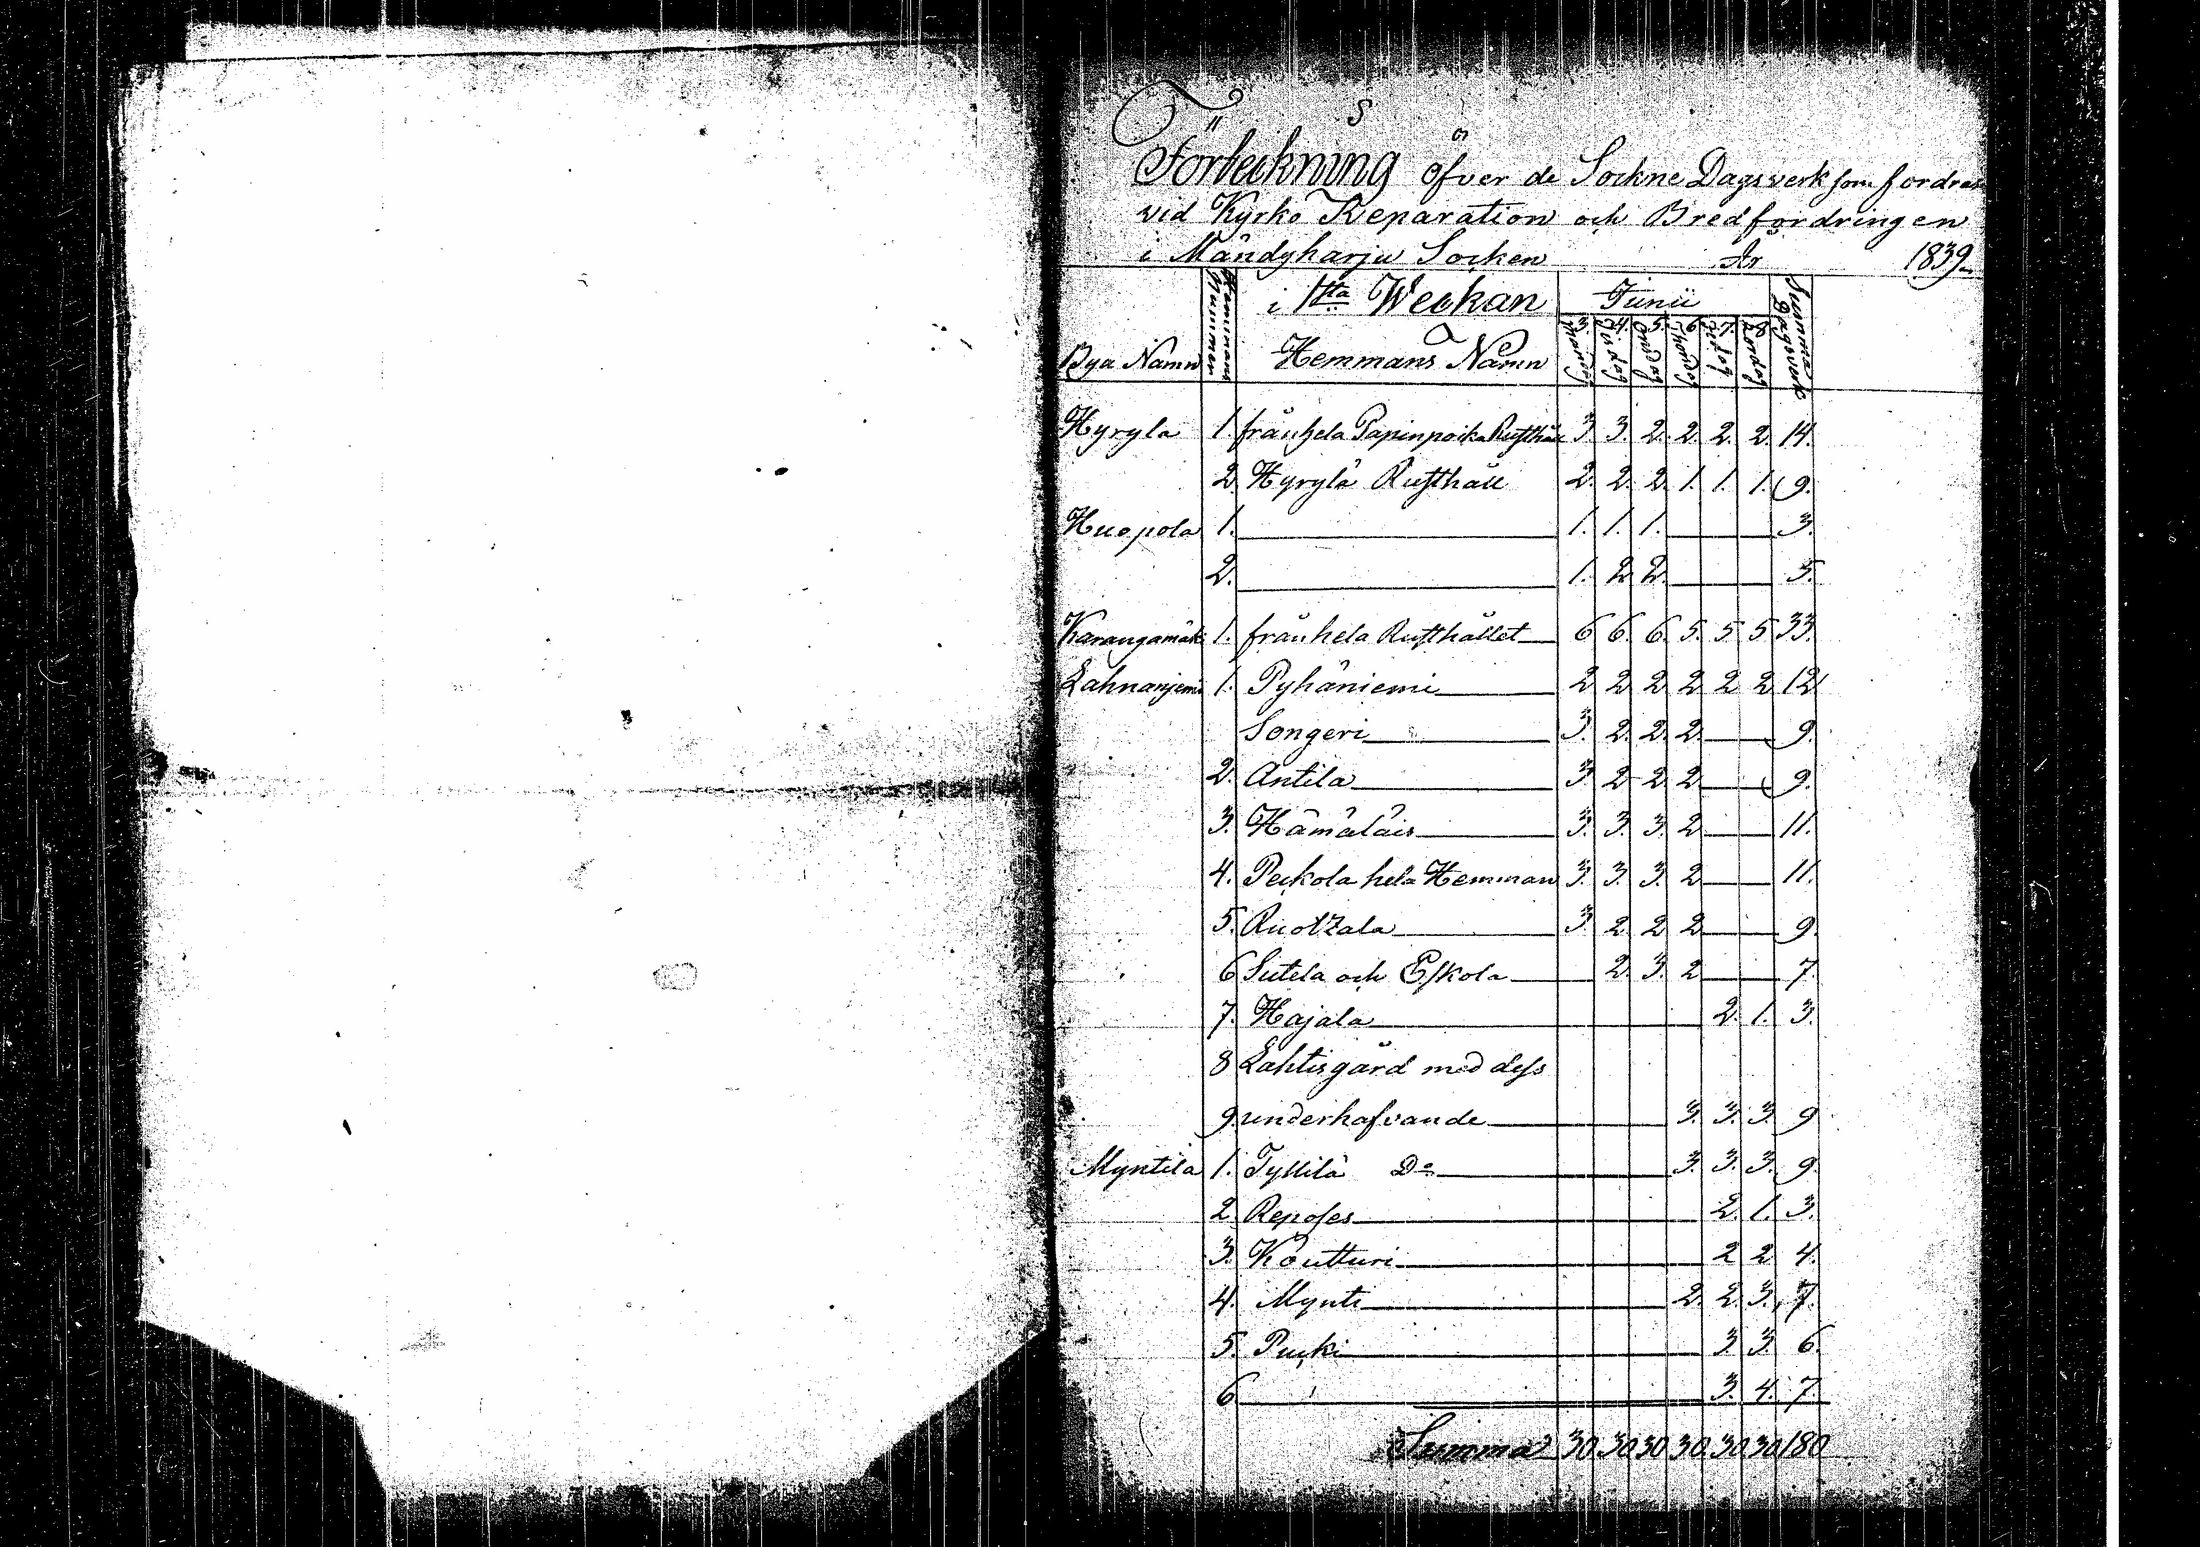 Förteckning öfver de Sockne Dagsverk som fordras
vid Kyrko Reparation och Bredfordringen
i Mändyharju Socken År 1839
Bya Namn Hemmans Nummer i 1sta Weckan Junii Summa Dagsverk
Hemmans Namn 3. Mandag 4. Tisdag 5. Onsdag 6. Thorsdag 7. Fredag 8. Lördag
Hyryla 1. från hela Papinpoika Rusthåll 3. 3. 2. 2. 2. 2. 14.
2. Hyrylä Rusthåll 2. 2. 2. 1. 1. 1. 9.
Huopola 1. 1. 1. 1. 3.
2. 1. 2. 2. 5.
Karangamäki 1. från hela Rusthållet 6 6. 6. 5. 5 5. 33.
Lahnanjemi 1. Pyhäniemi 2 2 2 2 2 2 12
Songeri 3. 2. 2. 2. 9.
2. Antila 3. 2 2 2 9.
3. Hämäläis 3. 3. 3. 2 11.
4. Peckola hela Hemman 3. 3. 3. 2 11.
5. Ruotzala 3. 2. 2 2 9.
6 Sutela och Eskola 2. 3. 2 7.
7. Hajala 2. 1. 3.
8 Lahtisgård med dess
9. underhafvande 3. 3. 3. 9
Myntila 1. Tyllilä Do 3. 3. 3. 9.
2. Reposes 2. 1. 3.
3. Koutturi 2 2 4.
4. Mynti 2. 2. 3. 7.
5. Pucki 3. 3. 6.
6 3. 4. 7.
Summa 30. 30. 30. 30. 30. 30. 180